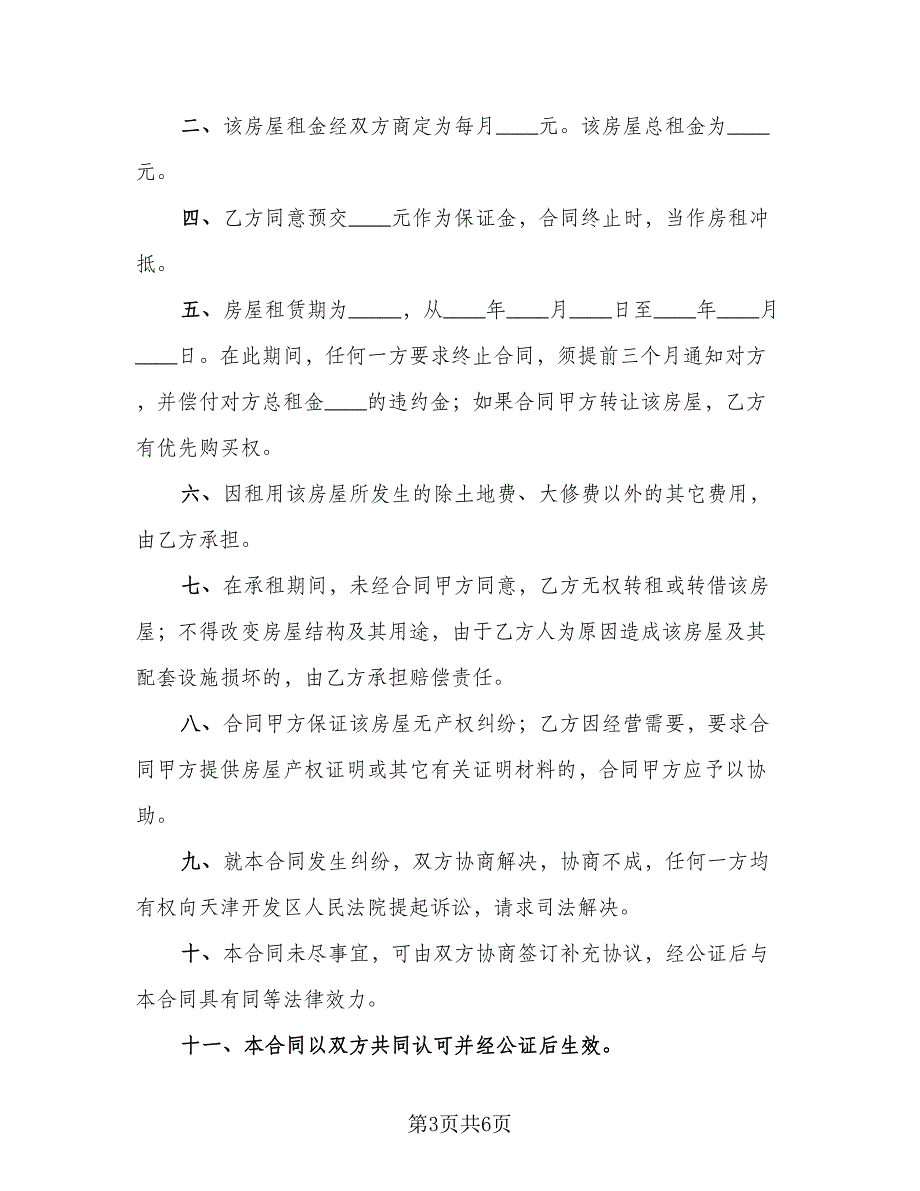 二、该房屋租金经双方商定为每月____元。该房屋总租金为____
元。
四、乙方同意预交____元作为保证金，合同终止时，当作房租冲
抵。
五、房屋租赁期为_____，从____年____月____日至____年____月
____日。在此期间，任何一方要求终止合同，须提前三个月通知对方
，并偿付对方总租金____的违约金；如果合同甲方转让该房屋，乙方
有优先购买权。
六、因租用该房屋所发生的除土地费、大修费以外的其它费用，
由乙方承担。
七、在承租期间，未经合同甲方同意，乙方无权转租或转借该房
屋；不得改变房屋结构及其用途，由于乙方人为原因造成该房屋及其
配套设施损坏的，由乙方承担赔偿责任。
八、合同甲方保证该房屋无产权纠纷；乙方因经营需要，要求合
同甲方提供房屋产权证明或其它有关证明材料的，合同甲方应予以协
助。
九、就本合同发生纠纷，双方协商解决，协商不成，任何一方均
有权向天津开发区人民法院提起诉讼，请求司法解决。
十、本合同未尽事宜，可由双方协商签订补充协议，经公证后与
本合同具有同等法律效力。
十一、本合同以双方共同认可并经公证后生效。
第3页共6页